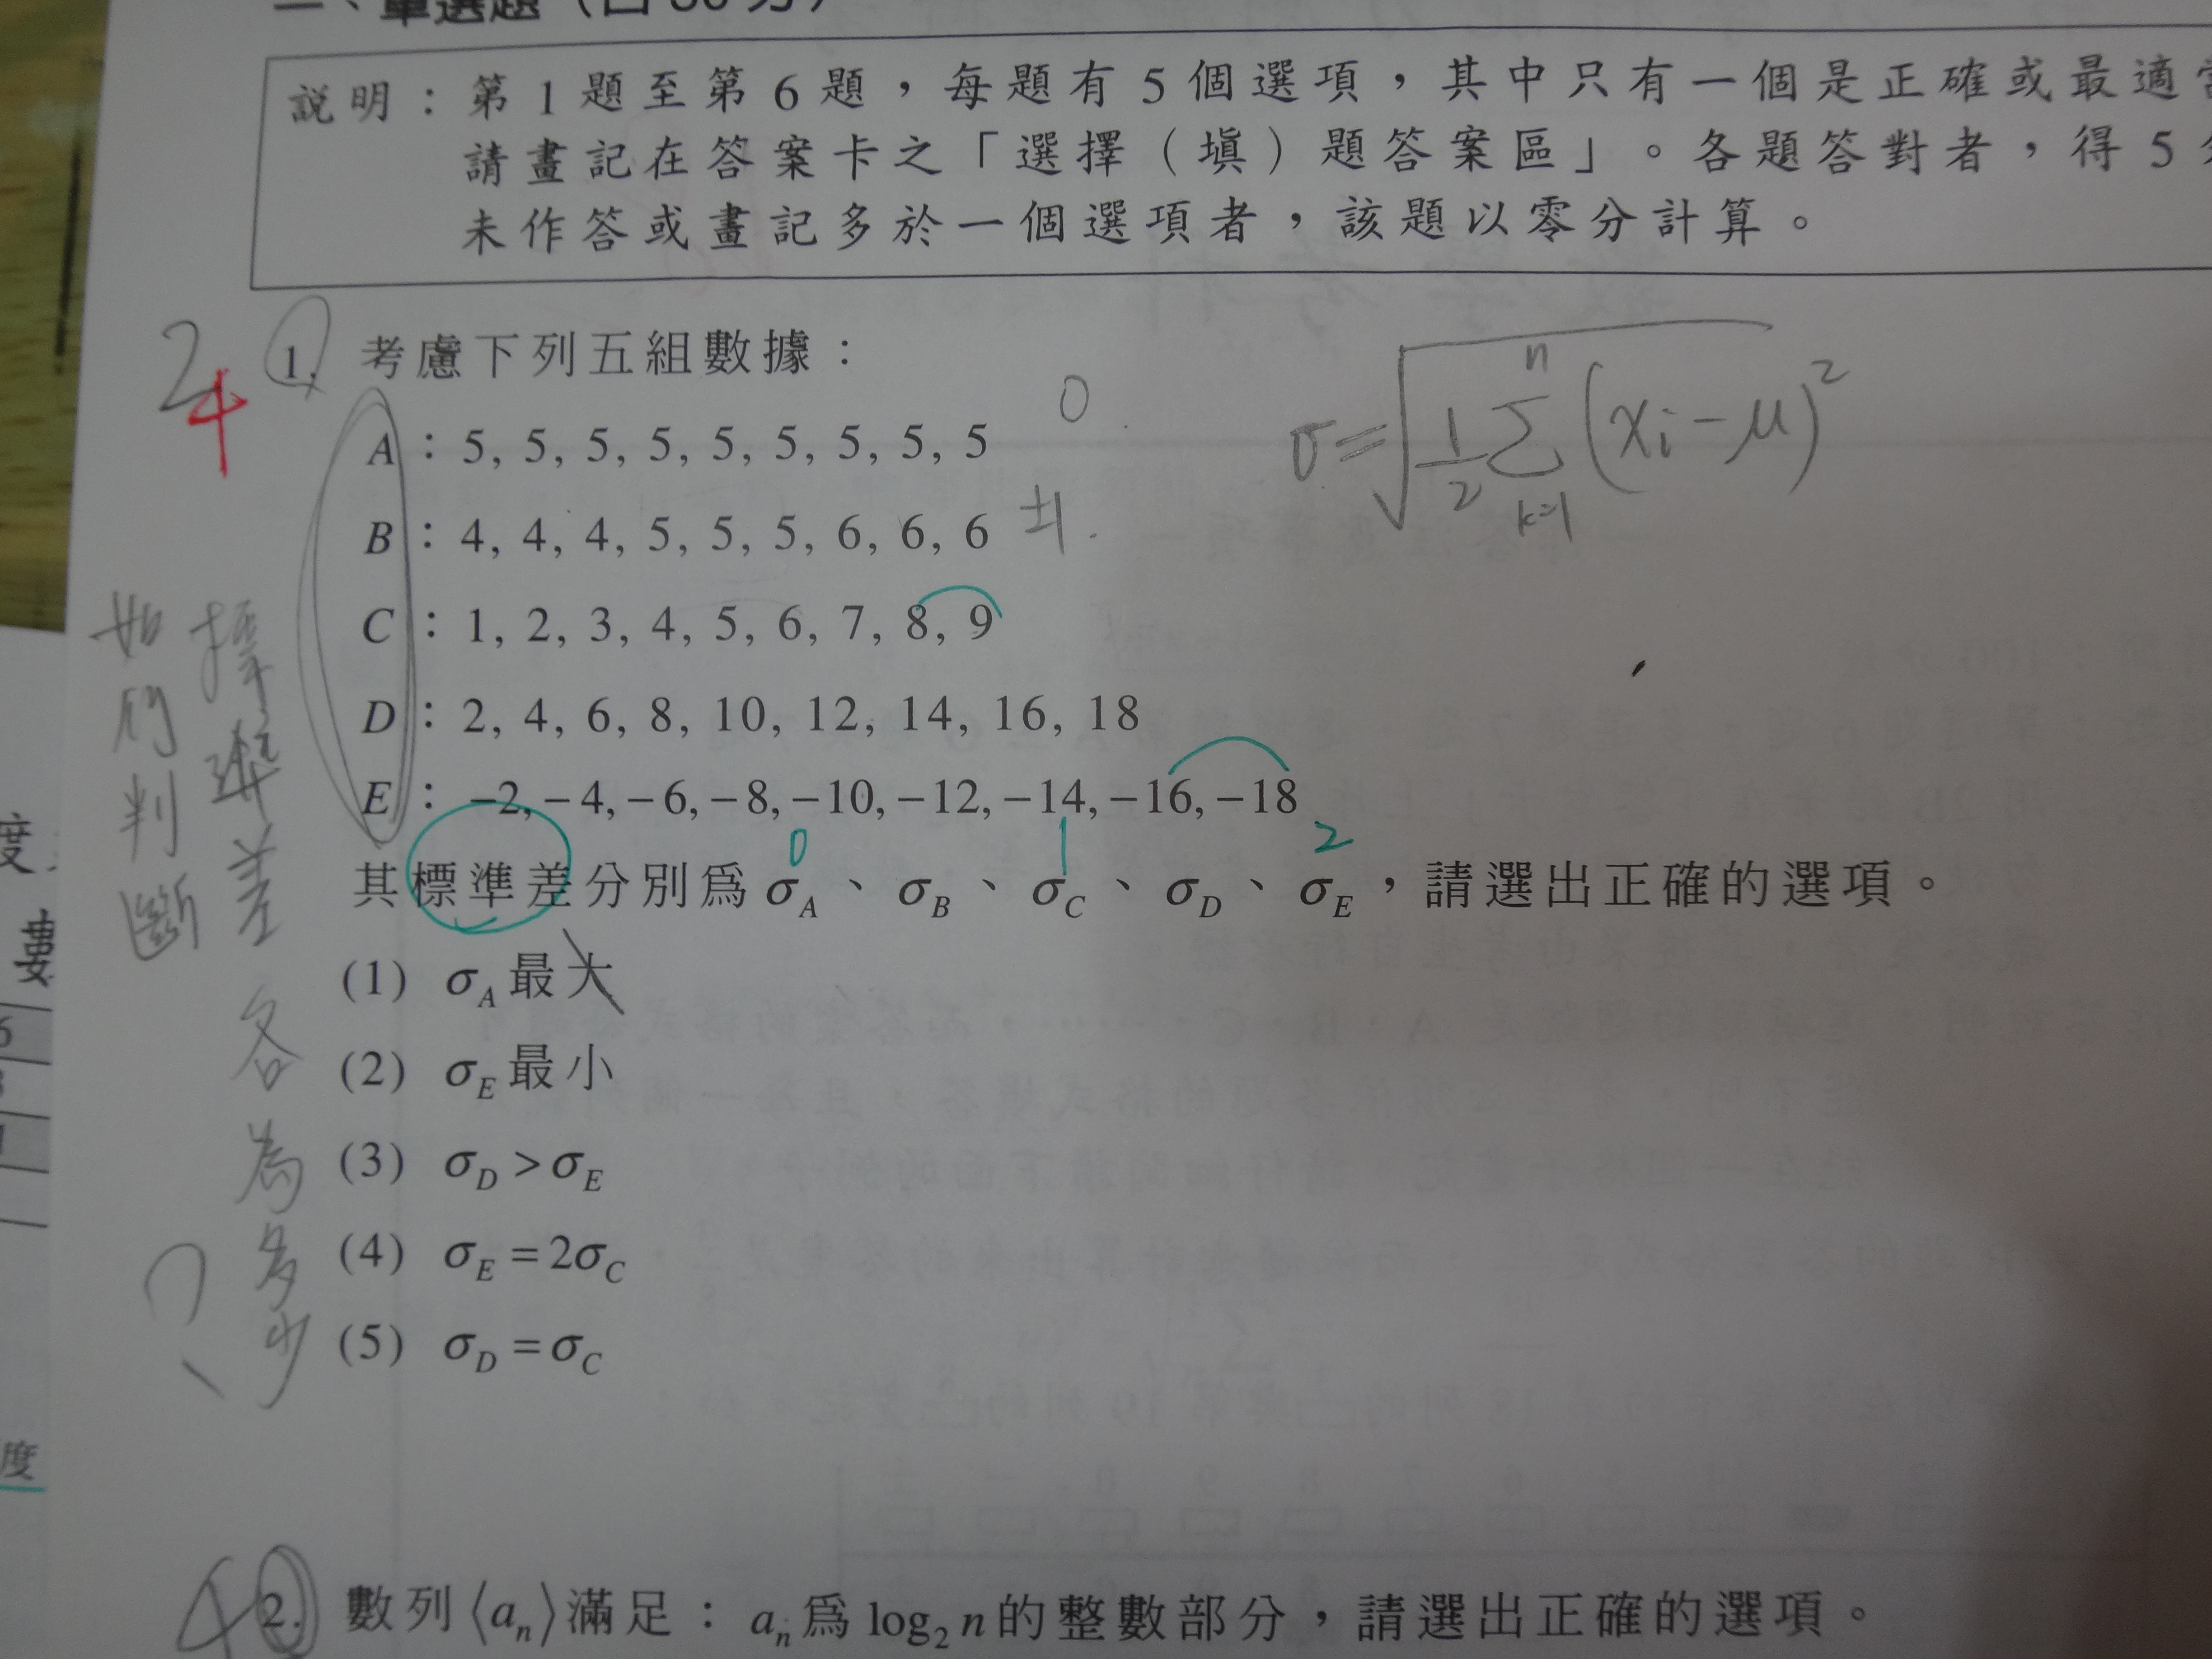 一、單選題（占 30 分）
說明：第 1 題至第 6 題，每題有 5 個選項，其中只有一個是正確或最適當
請畫記在答案卡之「選擇（填）題答案區」。各題答對者，得 5 分
未作答或畫記多於一個選項者，該題以零分計算。
2
4
1. 考慮下列五組數據：
A：5, 5, 5, 5, 5, 5, 5, 5, 5 0
B：4, 4, 4, 5, 5, 5, 6, 6, 6 ±1
C：1, 2, 3, 4, 5, 6, 7, 8, 9
D：2, 4, 6, 8, 10, 12, 14, 16, 18
E：−2, −4, −6, −8, −10, −12, −14, −16, −18
σ=√(1/2 Σ(k=1 to n) (xi−μ)²)
0 1 2
其標準差分別為 σA、σB、σC、σD、σE，請選出正確的選項。
(1) σA 最大
(2) σE 最小
(3) σD > σE
(4) σE = 2σC
(5) σD = σC
如何判斷
標準差各為多少
?
4
2. 數列⟨an⟩滿足：an 為 log2 n 的整數部分，請選出正確的選項。
度
度